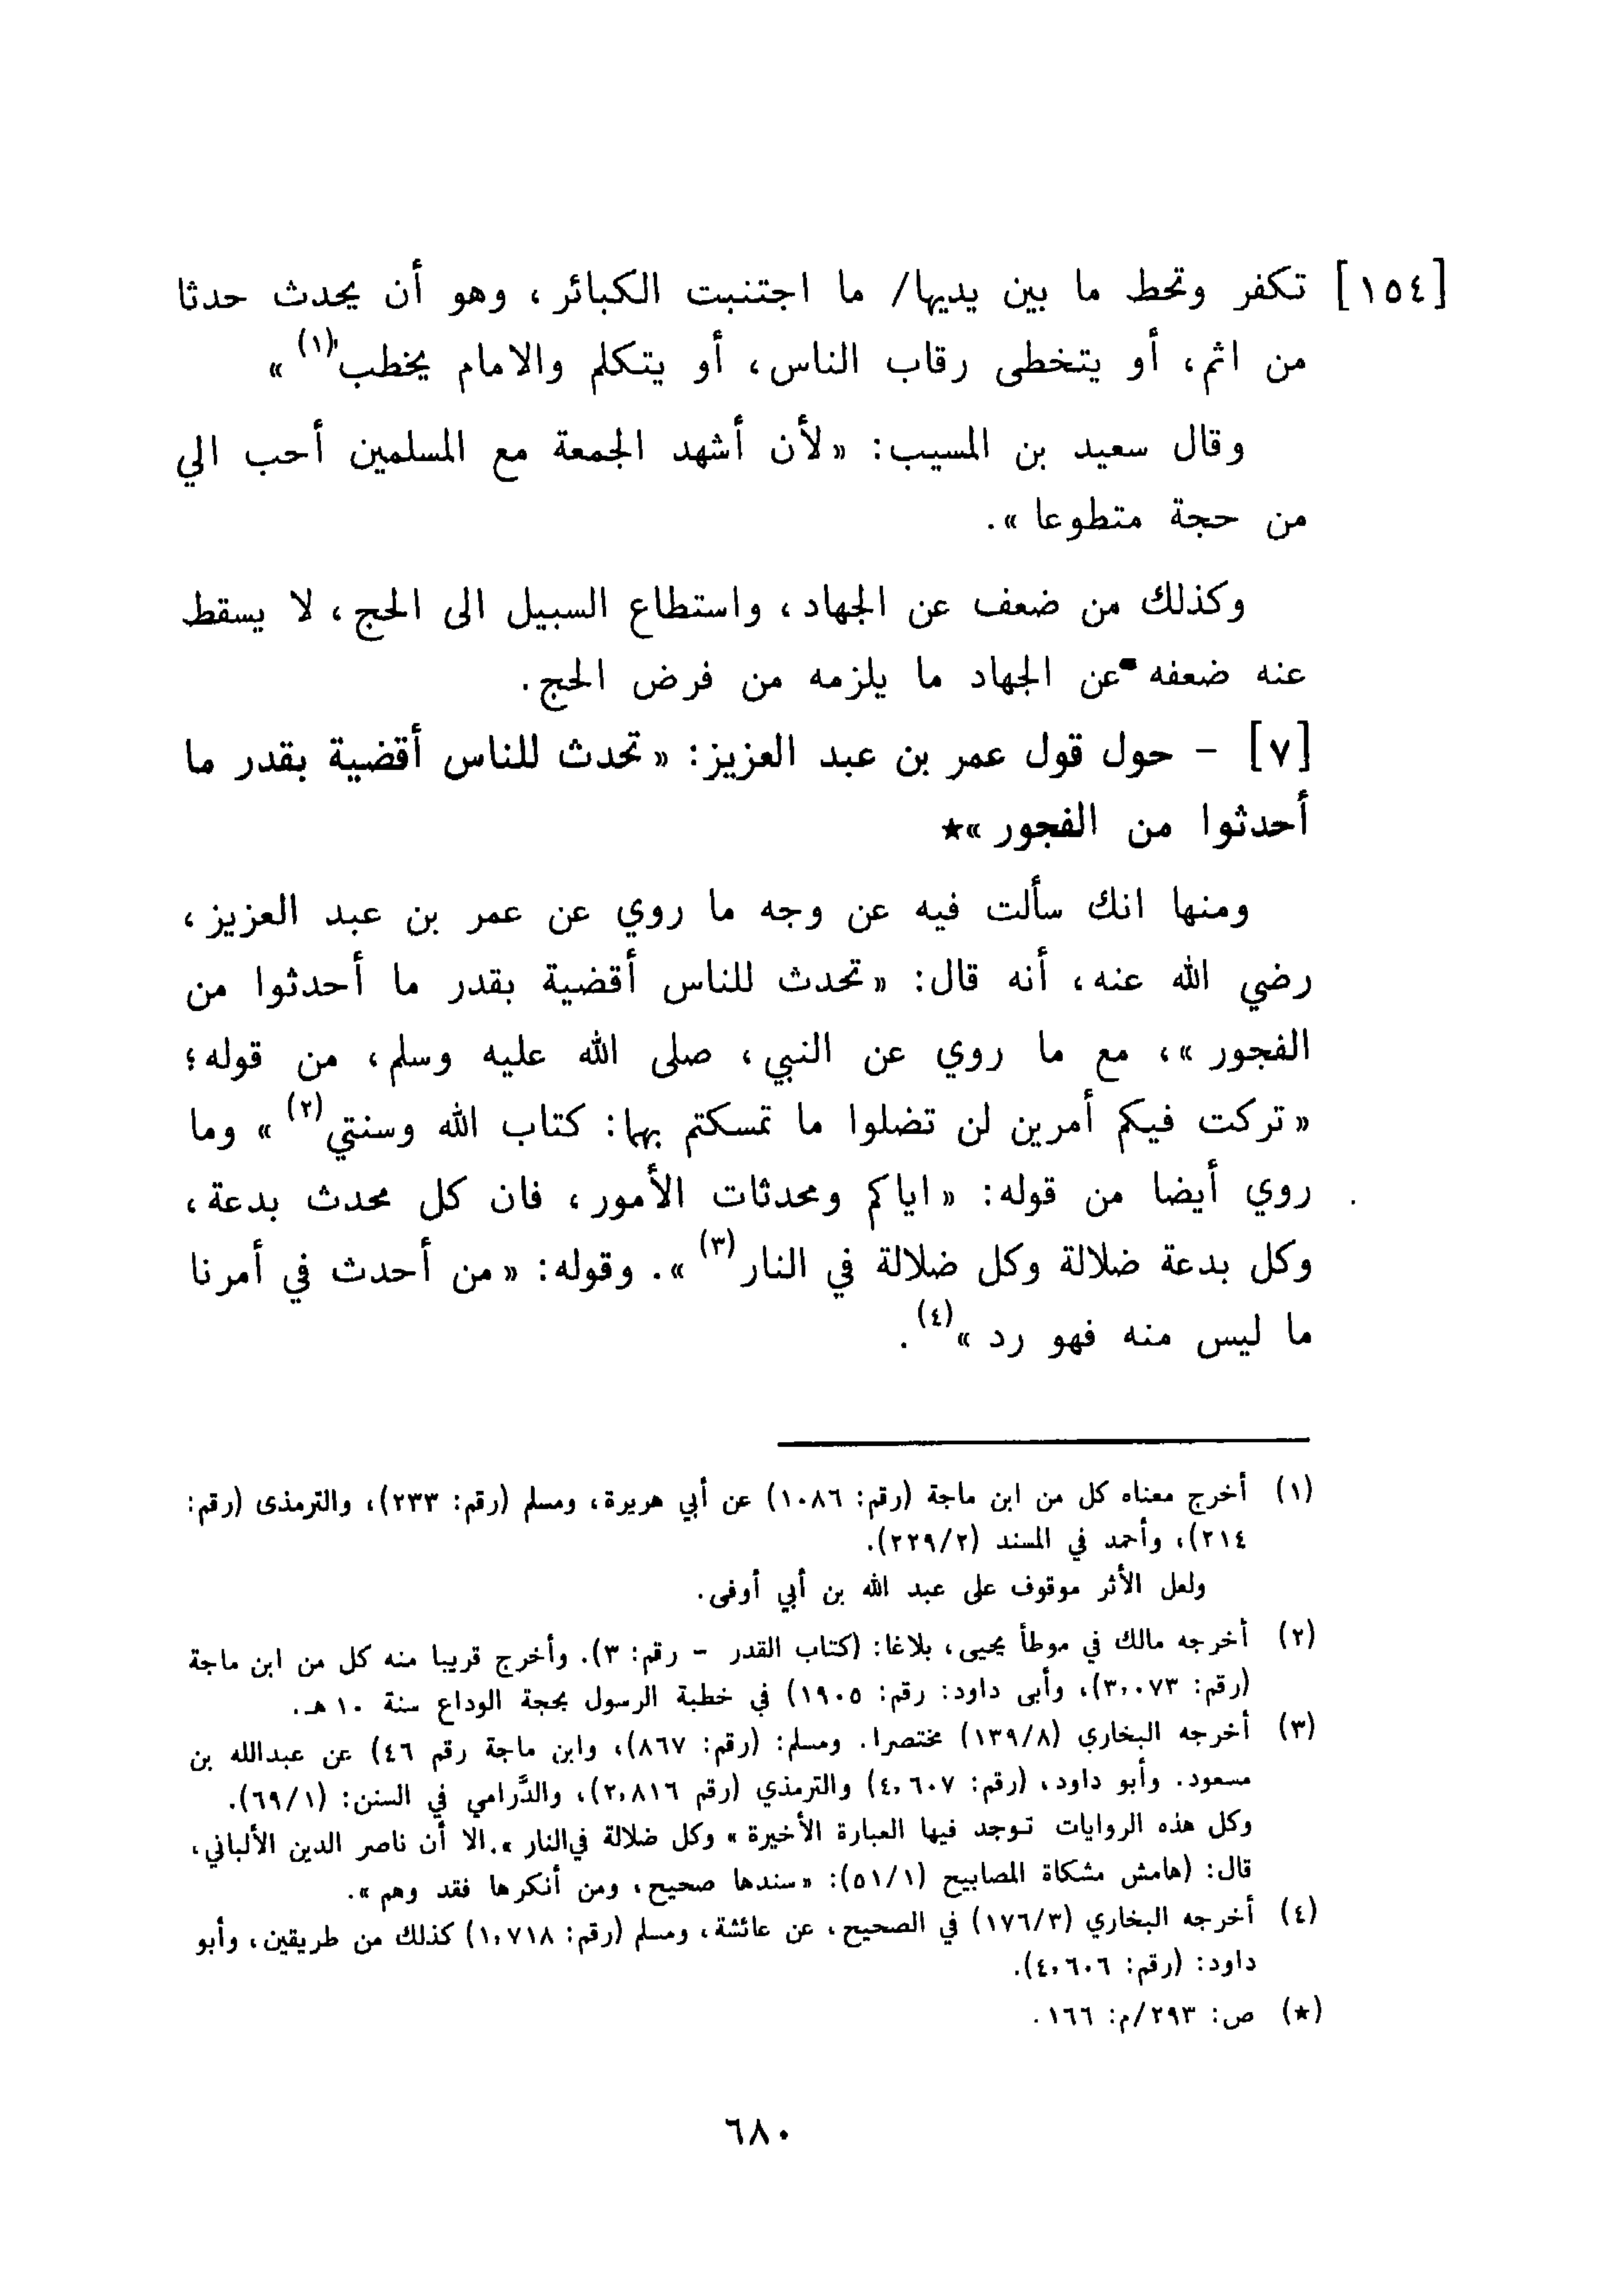 [١٥٤] تكفر وتحط ما بين يديها/ ما اجتنبت الكبائر، وهو أن يحدث حدثا
من اثم، أو يتخطى رقاب الناس، أو يتكلم والامام يخطب(١) »
وقال سعيد بن المسيب: « لأن أشهد الجمعة مع المسلمين أحب الي
من حجة متطوعا ».
وكذلك من ضعف عن الجهاد، واستطاع السبيل الى الحج، لا يسقط
عنه ضعفه عن الجهاد ما يلزمه من فرض الحج.
[٧] - حول قول عمر بن عبد العزيز: « تحدث للناس أقضية بقدر ما
أحدثوا من الفجور »★
ومنها انك سألت فيه عن وجه ما روي عن عمر بن عبد العزيز،
رضي الله عنه، أنه قال: « تحدث للناس أقضية بقدر ما أحدثوا من
الفجور »، مع ما روي عن النبي، صلى الله عليه وسلم، من قوله؛
« تركت فيكم أمرين لن تضلوا ما تمسكتم بهما: كتاب الله وسنتي(٢) » وما
روي أيضا من قوله: « اياكم ومحدثات الأمور، فان كل محدث بدعة،
وكل بدعة ضلالة وكل ضلالة في النار(٣) ». وقوله: « من أحدث في أمرنا
ما ليس منه فهو رد »(٤).
(١) أخرج معناه كل من ابن ماجة (رقم: ١٠٨٦) عن أبي هريرة، ومسلم (رقم: ٢٣٣)، والترمذى (رقم:
٢١٤)، وأحمد في المسند (٢٢٩/٢).
ولعل الأثر موقوف على عبد الله بن أبي أوفى.
(٢) أخرجه مالك في موطأ يحيى، بلاغا: (كتاب القدر - رقم: ٣). وأخرج قريبا منه كل من ابن ماجة
(رقم: ٣,٠٧٣)، وأبى داود: رقم: ١٩٠٥) في خطبة الرسول بحجة الوداع سنة ١٠ هـ.
(٣) أخرجه البخاري (١٣٩/٨) مختصرا. ومسلم: (رقم: ٨٦٧)، وابن ماجة رقم ٤٦) عن عبدالله بن
مسعود. وأبو داود، (رقم: ٤,٦٠٧) والترمذي (رقم ٢,٨١٦)، والدَّرامي في السنن: (٦٩/١).
وكل هذه الروايات توجد فيها العبارة الأخيرة « وكل ضلالة في النار ». الا أن ناصر الدين الألباني،
قال: (هامش مشكاة المصابيح (٥١/١): « سندها صحيح، ومن أنكرها فقد وهم ».
(٤) أخرجه البخاري (١٧٦/٣) في الصحيح، عن عائشة، ومسلم (رقم: ١,٧١٨) كذلك من طريقين، وأبو
داود: (رقم: ٤,٦٠٦).
(★) ص: ٢٩٣/م: ١٦٦.
٦٨٠